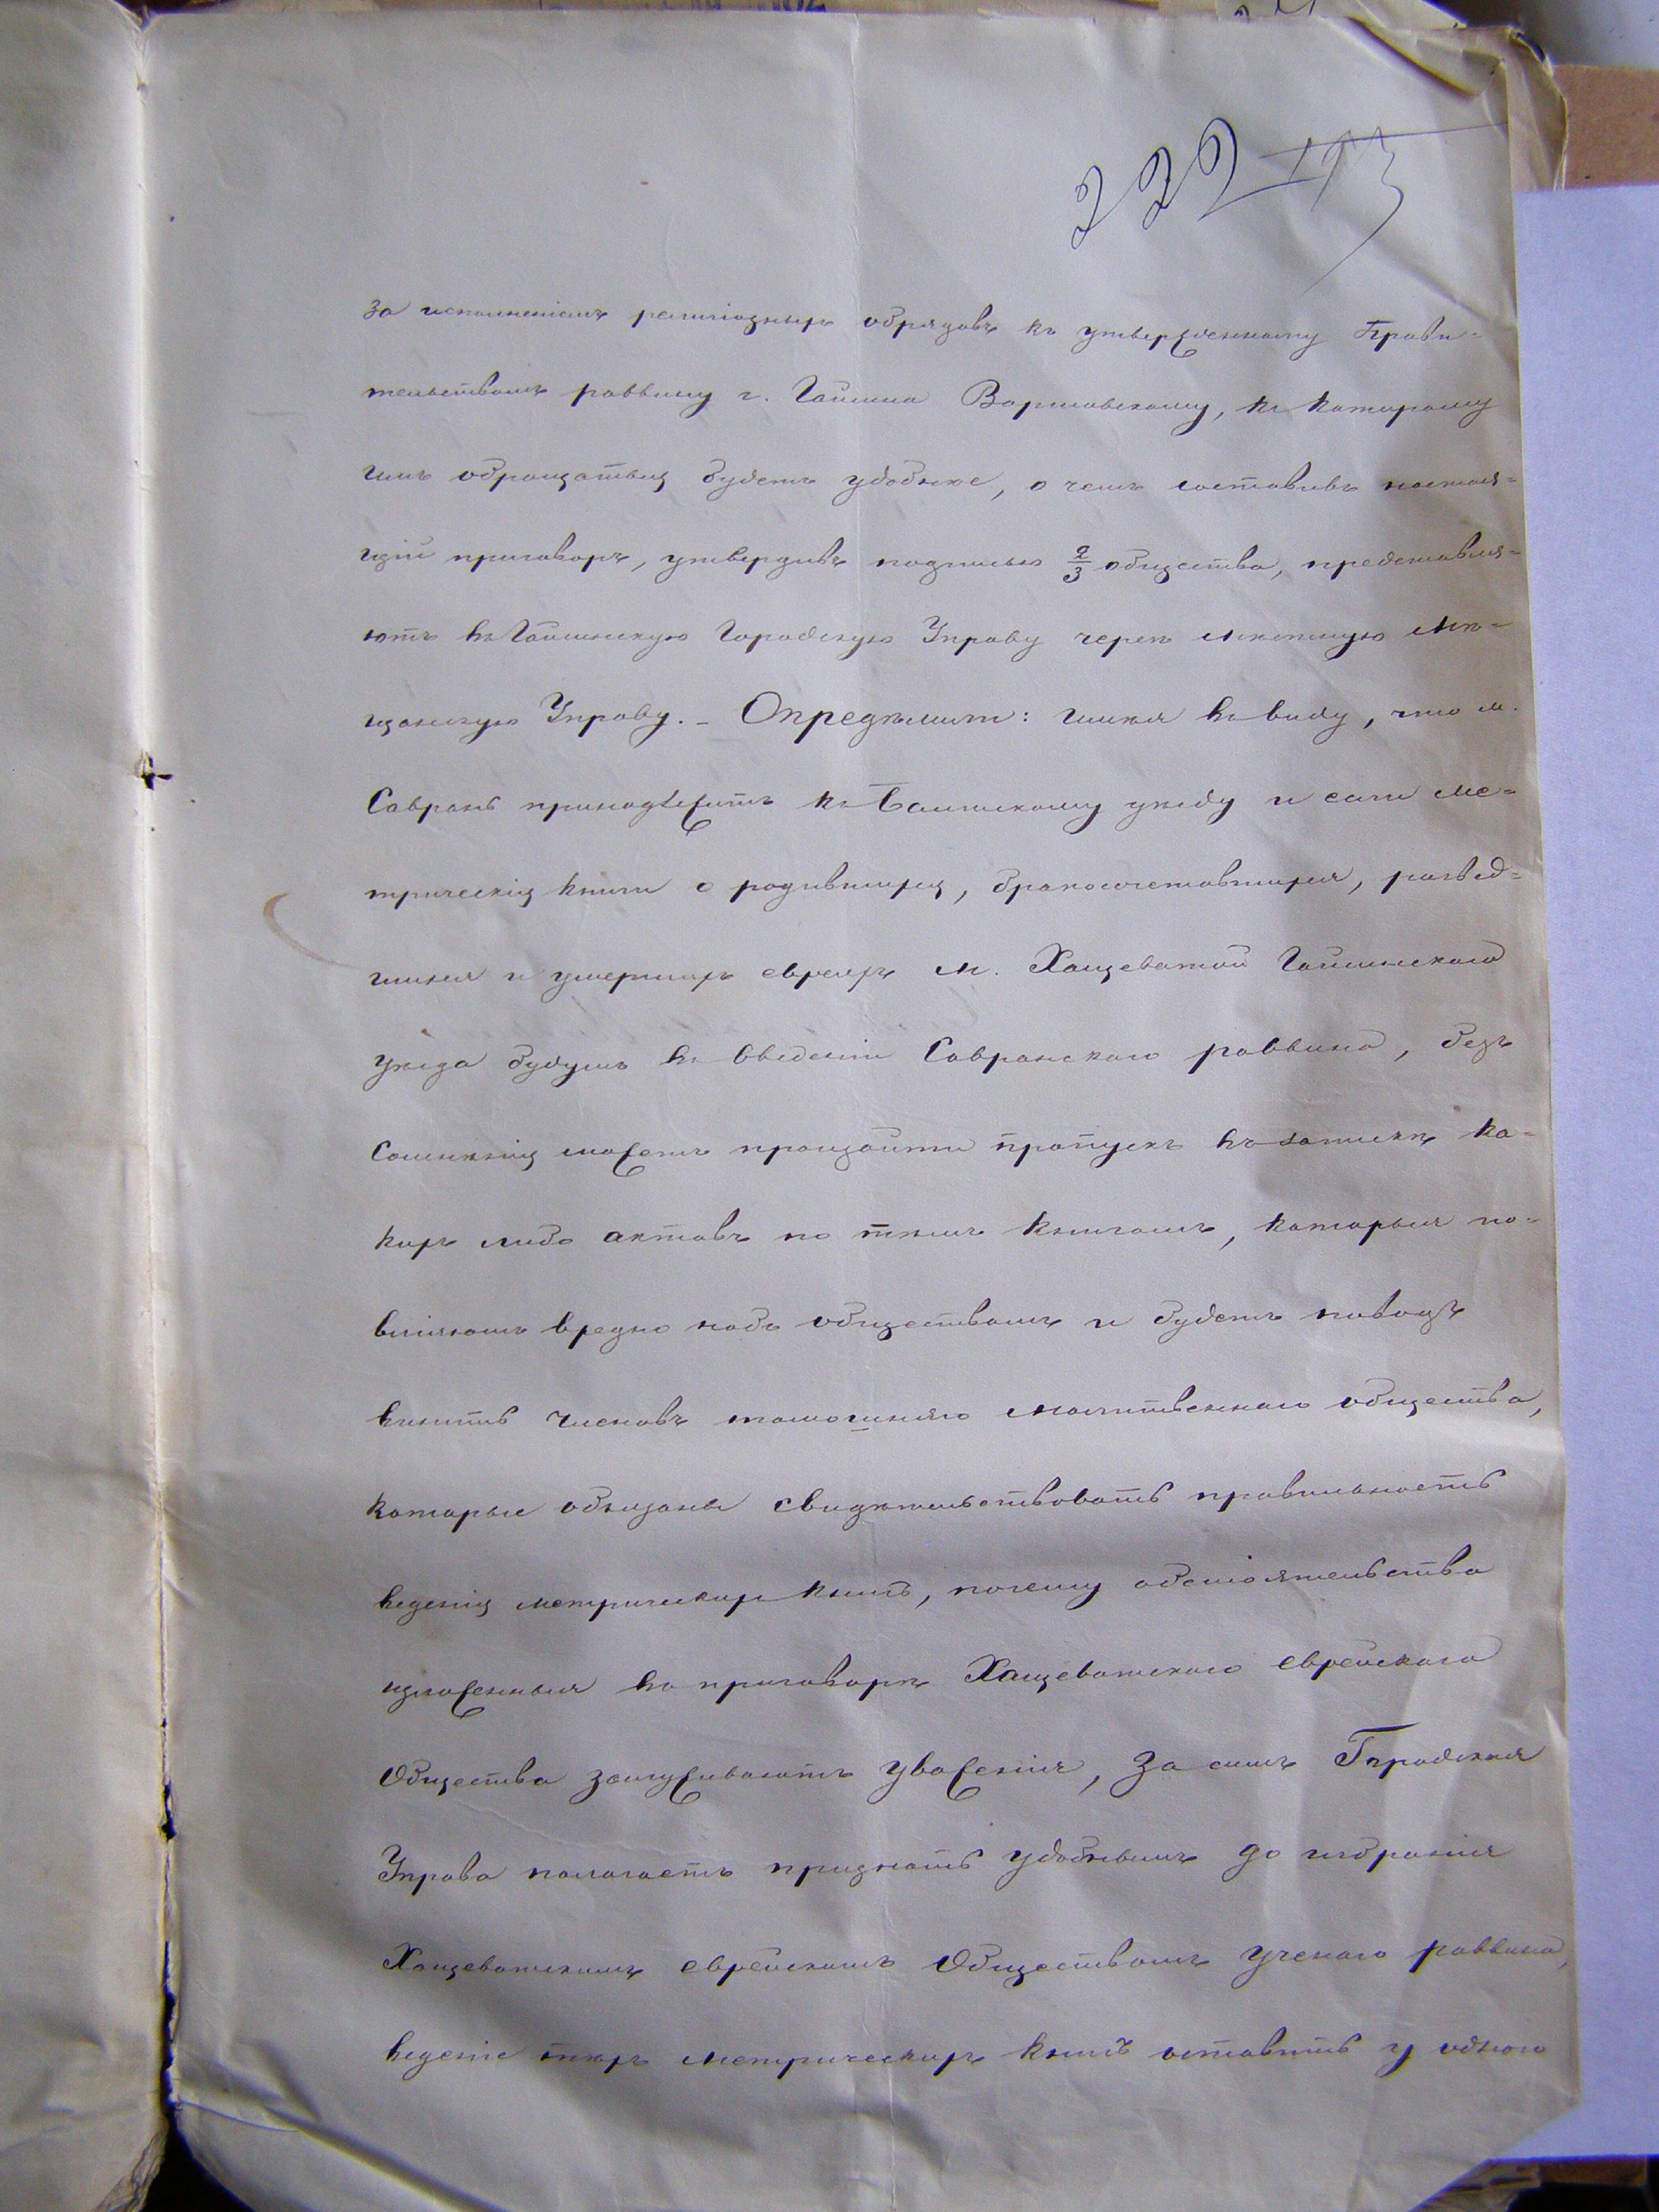 222 193
за исполненіемъ религіозныхъ обрядовъ къ утвержденному Прави-
тельствомъ раввину г. Гайсина Варшавскому, къ которому
имъ обращаться будетъ удобнѣе, о чемъ составивъ настоя-
щій приговоръ, утвердивъ подписью 2/3 общества, представля-
ютъ въ Гайсинскую Городскую Управу черезъ мѣстную Мѣ-
щанскую Управу. – Опредѣлили: имѣя въ виду, что м.
Саврань принадлежитъ къ Балтскому уѣзду и если ме-
трическія книги о родившихся, бракосочетавшихся, развед-
шихся и умершихъ евреяхъ м. Хащеватой Гайсинскаго
уѣзда будутъ въ вѣдѣніи Савранскаго раввина, безъ
сомнѣнія можетъ произойти пропускъ въ запискѣ ка-
кихъ либо актовъ по тѣмъ книгамъ, которыя по-
вліяютъ вредно надъ обществомъ и будетъ поводъ
винить членовъ тамошняго молитвеннаго общества,
которые обязаны свидѣтельствовать правильность
веденія метрическихъ книгъ, почему обстоятельства
изложенныя въ приговорѣ Хащеватскаго еврейскаго
Общества заслуживаютъ уваженія, за симъ Городская
Управа полагаетъ признать удобнымъ до избранія
Хащеватскимъ еврейскимъ Обществомъ ученаго раввина,
веденіе тѣхъ метрическихъ книгъ оставить у одного